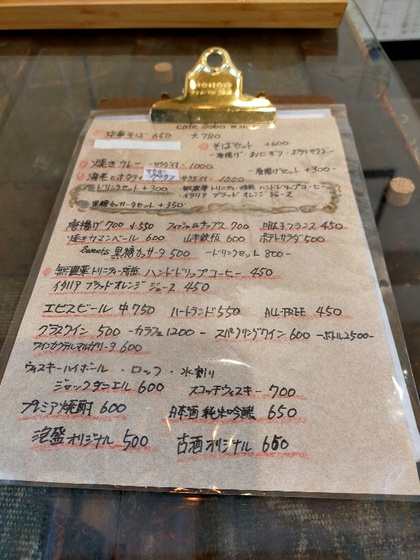 cafe soba
中華そば 650 大 780
そばセット +600
焼きカレー サラダ付 1000
唐揚げセット +300
ドリンクセット +300
ハンドドリップコーヒー
イタリア ブラッド オレンジ ジュース
黒糖カッサータセット +350
唐揚げ 700 小 550 フィッシュ&チップス 700 明太子フランス 450
焼きカマンベール 600 山芋鉄板 600 ポテトサラダ 500
sweets 黒糖カッサータ 500 -ドリンクセット 800-
ハンドドリップコーヒー 450
イタリア ブラッド オレンジ ジュース 450
エビスビール 中 750 ハートランド 550 ALL-FREE 450
グラスワイン 500 -カラフェ 1200- スパークリングワイン 600 -ボトル 2500-
ワインカクテル マルガリータ 600
ウィスキーハイボール ・ ロック ・ 水割り
ジャックダニエル 600 スコッチウィスキー 700
プレミアム焼酎 600 日本酒 純米吟醸 650
泡盛オリジナル 500 古酒オリジナル 650